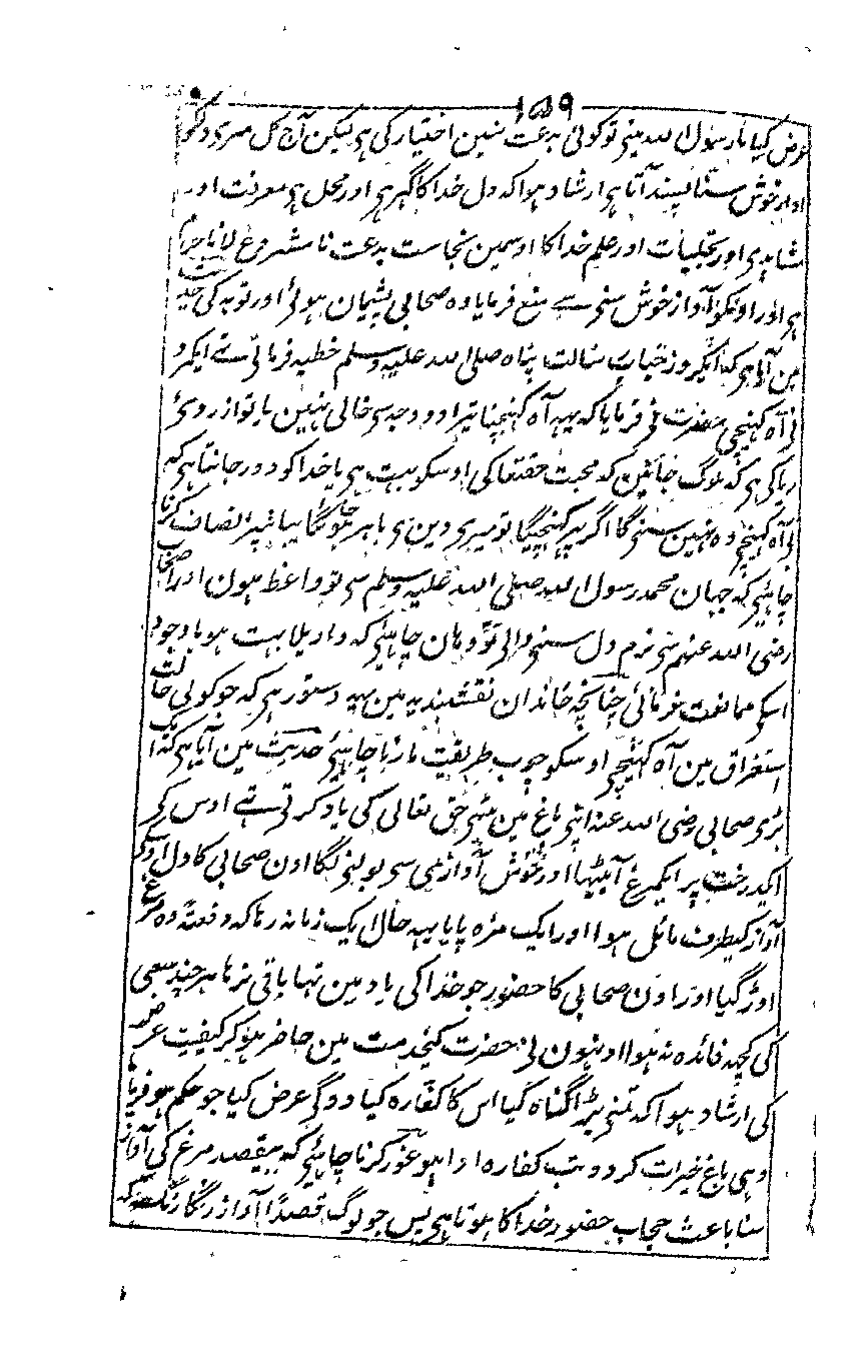 ۱۵۹
عرض کیا یا رسول اللہ مینے تو کوئی بدعت نہین اختیار کی ہی لیکن آج کل میری دلکو
آواز خوش سننا پسند آتا ہی ارشاد ہوا کہ دل خدا کا گہر ہی اور محل ہی معرفت اور
مشاہدی اور تجلیات اور علم خدا کا اوسمین نجاست بدعت نا مشروع لانا حرام
ہی اور اونکو آواز خوش سننے سے منع فرمایا وہ صحابی پشیمان ہوئے اور توبہ کی حدیث
مین آیا ہی کہ ایکروز جناب رسالت پناہ صلی اللہ علیہ وسلم خطبہ فرماتے تھے ایکمرد
نی آہ کہینچی حضرت نی فرمایا کہ یہہ آہ کہینچنا تیرا دو وجہ سی خالی نہین یا تو از روئے
ریا کی ہی کہ لوگ جانین کہ محبت حقتعالی کی اوسکو بہت ہی یا خدا کو دور جانتا ہی کہ
بی آہ کہینچے وہ نہین سنیگا اگر پہر کہینچیگا تو میری دین سی باہر ہو گا بہائیو انصاف کرنا
چاہئے کہ جہان محمد رسول اللہ صلی اللہ علیہ وسلم سی تو واعظ ہون اور اصحاب
رضی اللہ عنہم سی نرم دل سننے والی تو وہان چاہئے کہ واویلا بہت ہو باوجود
اسکی ممانعت فرمائی چنانچہ خاندان نقشبندیہ مین یہہ دستور ہی کہ جو کوئی حالت
استغراق مین آہ کہینچے اوسکو چوب طریقت مارنا چاہئے حدیث مین آیا ہی کہ ایک
بڑی صحابی رضی اللہ عنہ اپنے باغ مین بیٹھے حق تعالی کی یاد کرتے تھے اوس کی
ایکدرخت پر ایکمرغ آ بیٹھا اور خوش آوازی سی بولنے لگا اون صحابی کا دل اوسکی
آواز کیطرف مائل ہوا اور ایک مزہ پایا یہہ حال ایک زمانہ رہا کہ دفعتہً وہ مرغ
اوڑ گیا اور اون صحابی کا حضور جو خدا کی یاد مین تہا باقی نرہا ہر چند سعی
کی کچہہ فائدہ نہ ہوا اونہون نی حضرت کیخدمت مین حاضر ہو کر کیفیت عرض
کی ارشاد ہوا کہ تمنے بڑا گناہ کیا اس کا کفارہ کیا دوگی عرض کیا جو حکم ہو فرمایا
وہی باغ خیرات کر دو تب کفارہ ادا ہو غور کرنا چاہئے کہ بیقصد مرغ کی آواز
سنا باعث حجاب حضور خدا کا ہوتا ہی پس جو لوگ قصدًا آواز رنگا رنگ